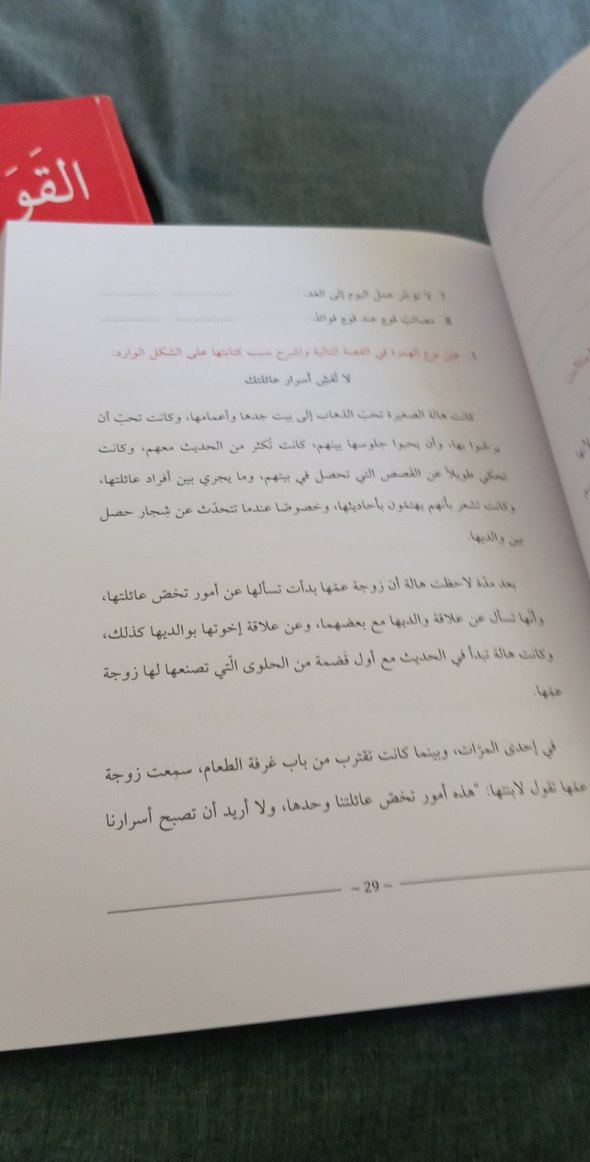 القَوَ
7. لا تؤخّر عمل اليوم إلى الغد. .............. ..............
8. مصائبُ قوم عند قوم فوائدُ. .............. ..............
عيّن نوع الهمزة في القصة التالية واشرح سبب كتابتها على الشكل الوارد:
لا تُفشِ أسرار عائلتك
كانت هالة الصغيرة تحبّ الذهاب إلى بيت جدها وأعمامها، وكانت تحبّ أن
يرغبوا بها، وأن يحبوا جلوسها بينهم، كانت تُكثر من الحديث معهم، وكانت
تحكي طويلاً عن القَصص التي تحصل في بيتهم، وما يجري بين أفراد عائلتها،
وكانت تشعر بأنهم يهتمّون بأحاديثها، وخصوصًا عندما تتحدّث عن شِجار حصل
بين والديها.
بعد مدّة لاحظت هالة أن زوجة عمّها بدأت تسألها عن أمور تخصّ عائلتها،
وأنّها تسأل عن علاقة والديها مع بعضهما، وعن علاقة إخوتها بوالديها كذلك،
وكانت هالة تبدأ في الحديث مع أول قَضمة من الحلوى الّتي تصنعها لها زوجة
عمّها.
في إحدى المرّات، وبينما كانت تقترب من باب غرفة الطعام، سمِعت زوجة
عمّها تقول لابنتها: "هذه أمور تخصّ عائلتنا وحدها، ولا أريد أن تصبح أسرارنا
~ 29 ~